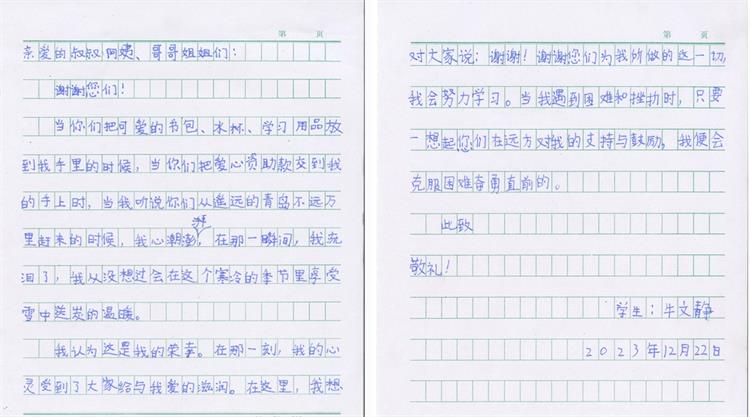 第 页
亲爱的叔叔阿姨、哥哥姐姐们：
谢谢您们！
当你们把可爱的书包、水杯、学习用品放
到我手里的时候，当你们把爱心资助款交到我
的手上时，当我听说你们从遥远的青岛不远万
里赶来的时候，我心潮澎湃，在那一瞬间，我流
泪了，我从没想过会在这个寒冷的季节里享受
雪中送炭的温暖。
我认为这是我的荣幸。在那一刻，我的心
灵受到了大家给与我爱的滋润。在这里，我想
第 页
对大家说：谢谢！谢谢您们为我所做的这一切，
我会努力学习。当我遇到困难和挫折时，只要
一想起您们在远方对我的支持与鼓励，我便会
克服困难奋勇直前的。
此致
敬礼！
学生：牛文静
2023年12月22日